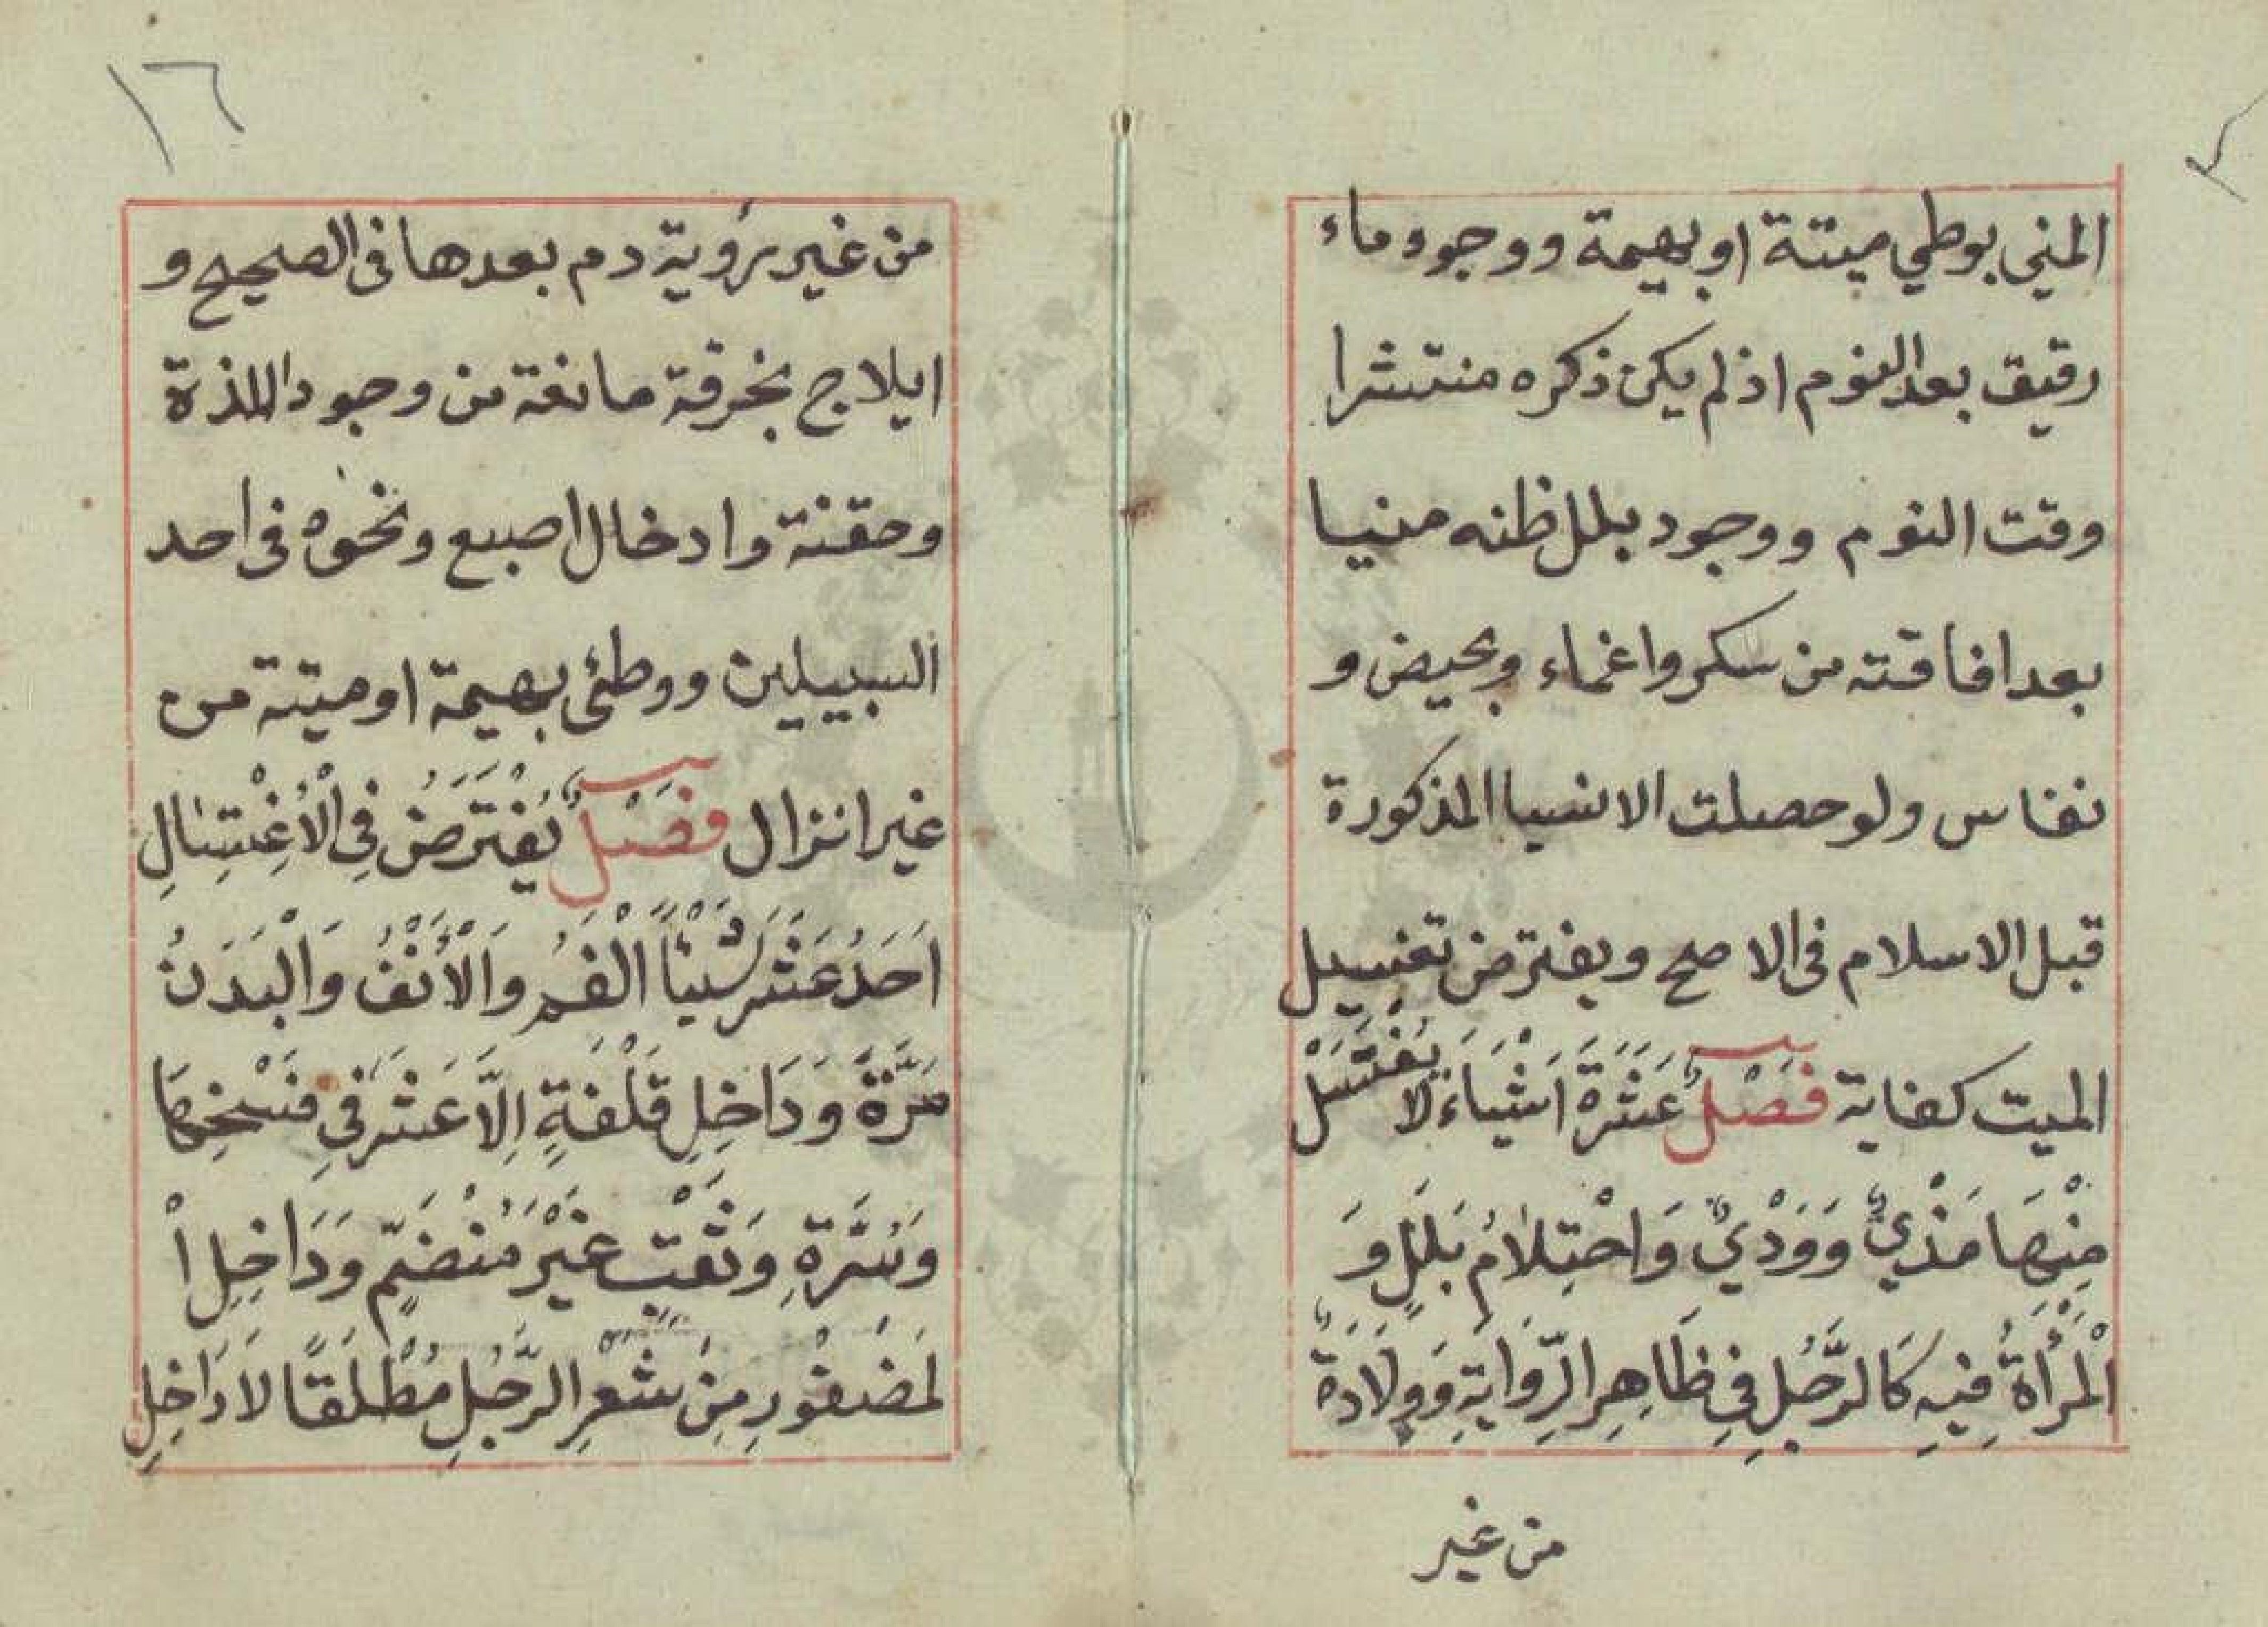 المني بوطي ميتة او بهيمة ووجود ماء
رقيق بعد النوم اذ لم يكن ذكره منتشرا
وقت النوم ووجود بلل ظنه منيا
بعد افاقته من سكر واغماء وبحيض و
نفاس ولو حصلت الاشيا المذكورة
قبل الاسلام فى الاصح ويفترض تغسيل
الميت كفاية فَصْلٌ عَشَرَةَ اَشْيَاءَ لَا يَغْتَسَلْ
مِنْهَا مَذْيٌ وَوَدْيٌ وَاحْتِلَامُ بَلَلٍ وَ
الْمَرْأَةُ فِيهِ كَالرَّجُلِ فِي ظَاهِرِ الرِّوَايَةِ وَوِلَادَةٌ
من غير
١٦
من غير رؤية دم بعدها فى الصحيح و
ايلاج بخرقة مانعة من وجود اللذة
وحقنة وادخال اصبع ونحوه فى احد
السبيلين ووطئ بهيمة او ميتة من
غير انزال فَصْلٌ يُفْتَرَضُ فِي الْأُغْتِسَالِ
اَحَدُ عَشَرَ شَيْئًا الْفَمُ وَالْأَنْفُ وَالْبَدَنُ
مَرَّةً وَدَاخِلِ قَلْفَةٍ اِلَّا عَسَرَ فِي فَسْخِهَا
وَسُرَّةِ وَثَقْبٍ غَيْرَ مُنْضَمٍّ وَدَاخِلِ اْ
لمَضْفُورِ مِنْ شَعْرِ الرَّجُلِ مُطْلَقًا لَا دَاخِلِ